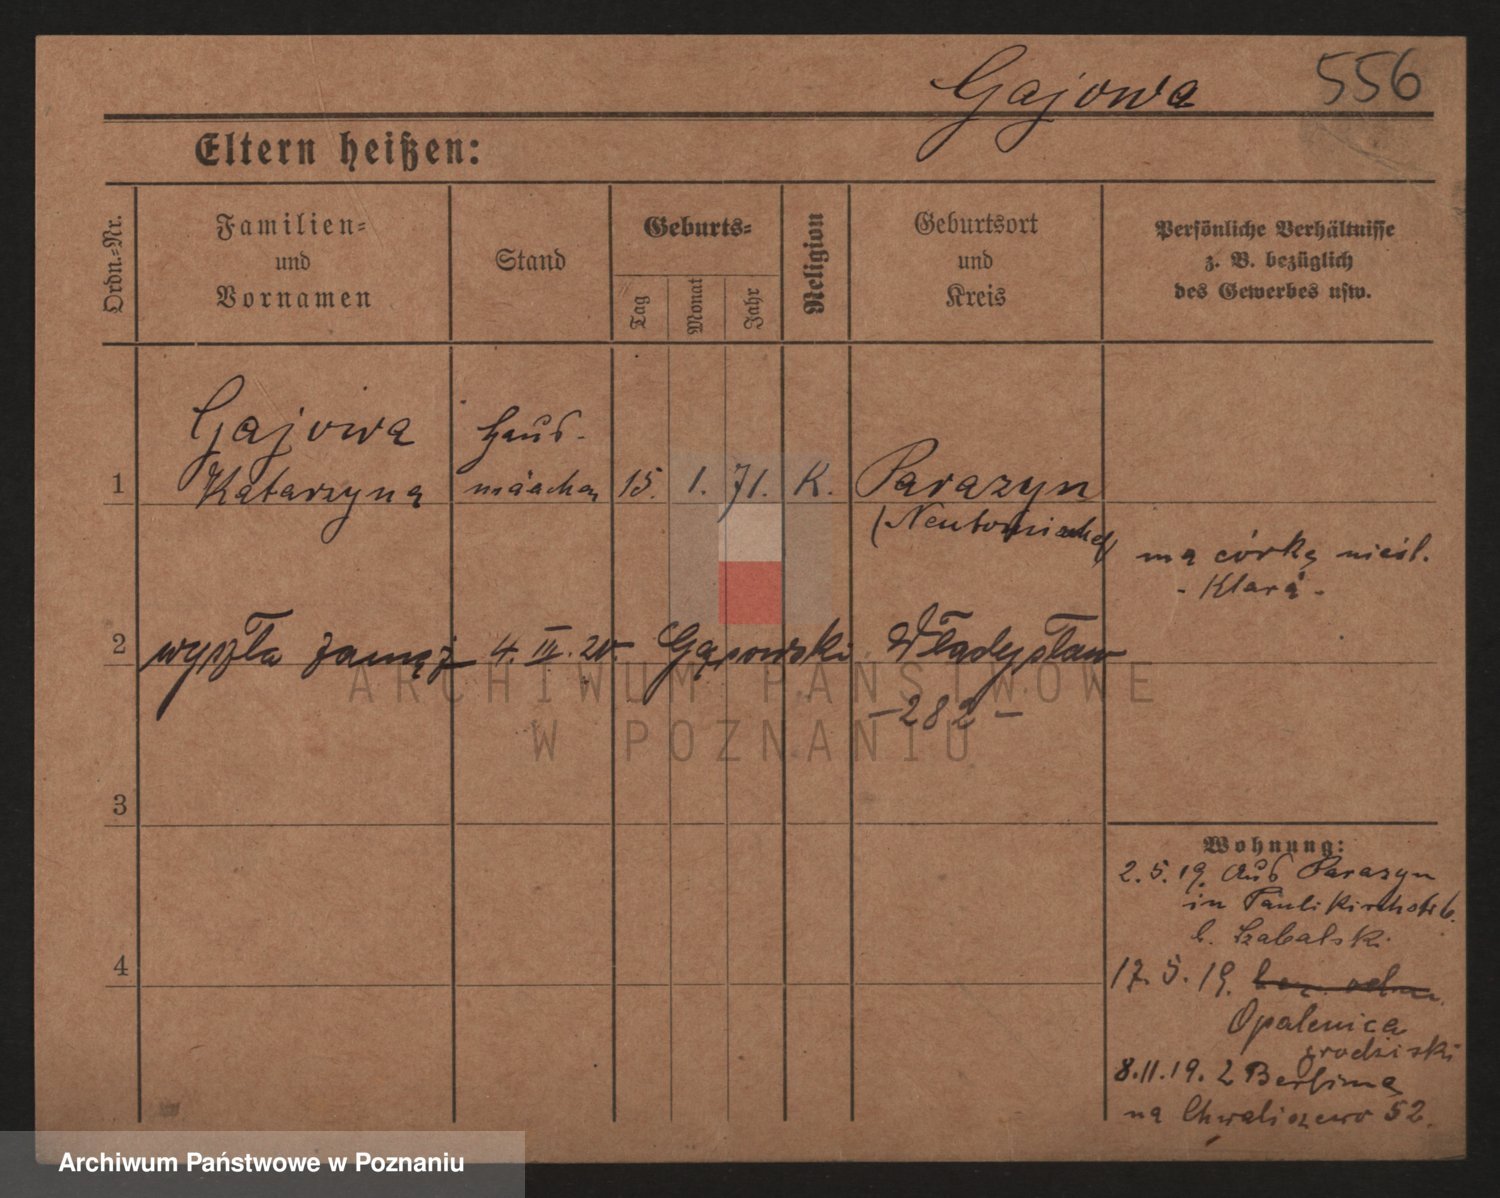 Gajowa 556
Eltern heißen:
Ordn.-Nr.
Familien-
und
Vornamen
Stand
Geburts-
Tag
Monat
Jahr
Religion
Geburtsort
und
Kreis
Persönliche Verhältnisse
z. B. bezüglich
des Gewerbes usw.
Gajowa Haus-
1 Katarzyna mädchen 15. 1. 71. K. Parazyn
ma córkę nieśl.
- Klarą -
2 wyszła zamąż 4. III. 20. Gąsowski Władysław
- 282 -
3
Wohnung:
2.5.19. Aus Parazyn
in Paulikirchstr 6.
b. Szabalski
4
17.5.19.
Opalenica
grodziski
8.11.19. z Berlina
na Chwaliszewo 52.
ARCHIWUM PAŃSTWOWE
W POZNANIU
Archiwum Państwowe w Poznaniu